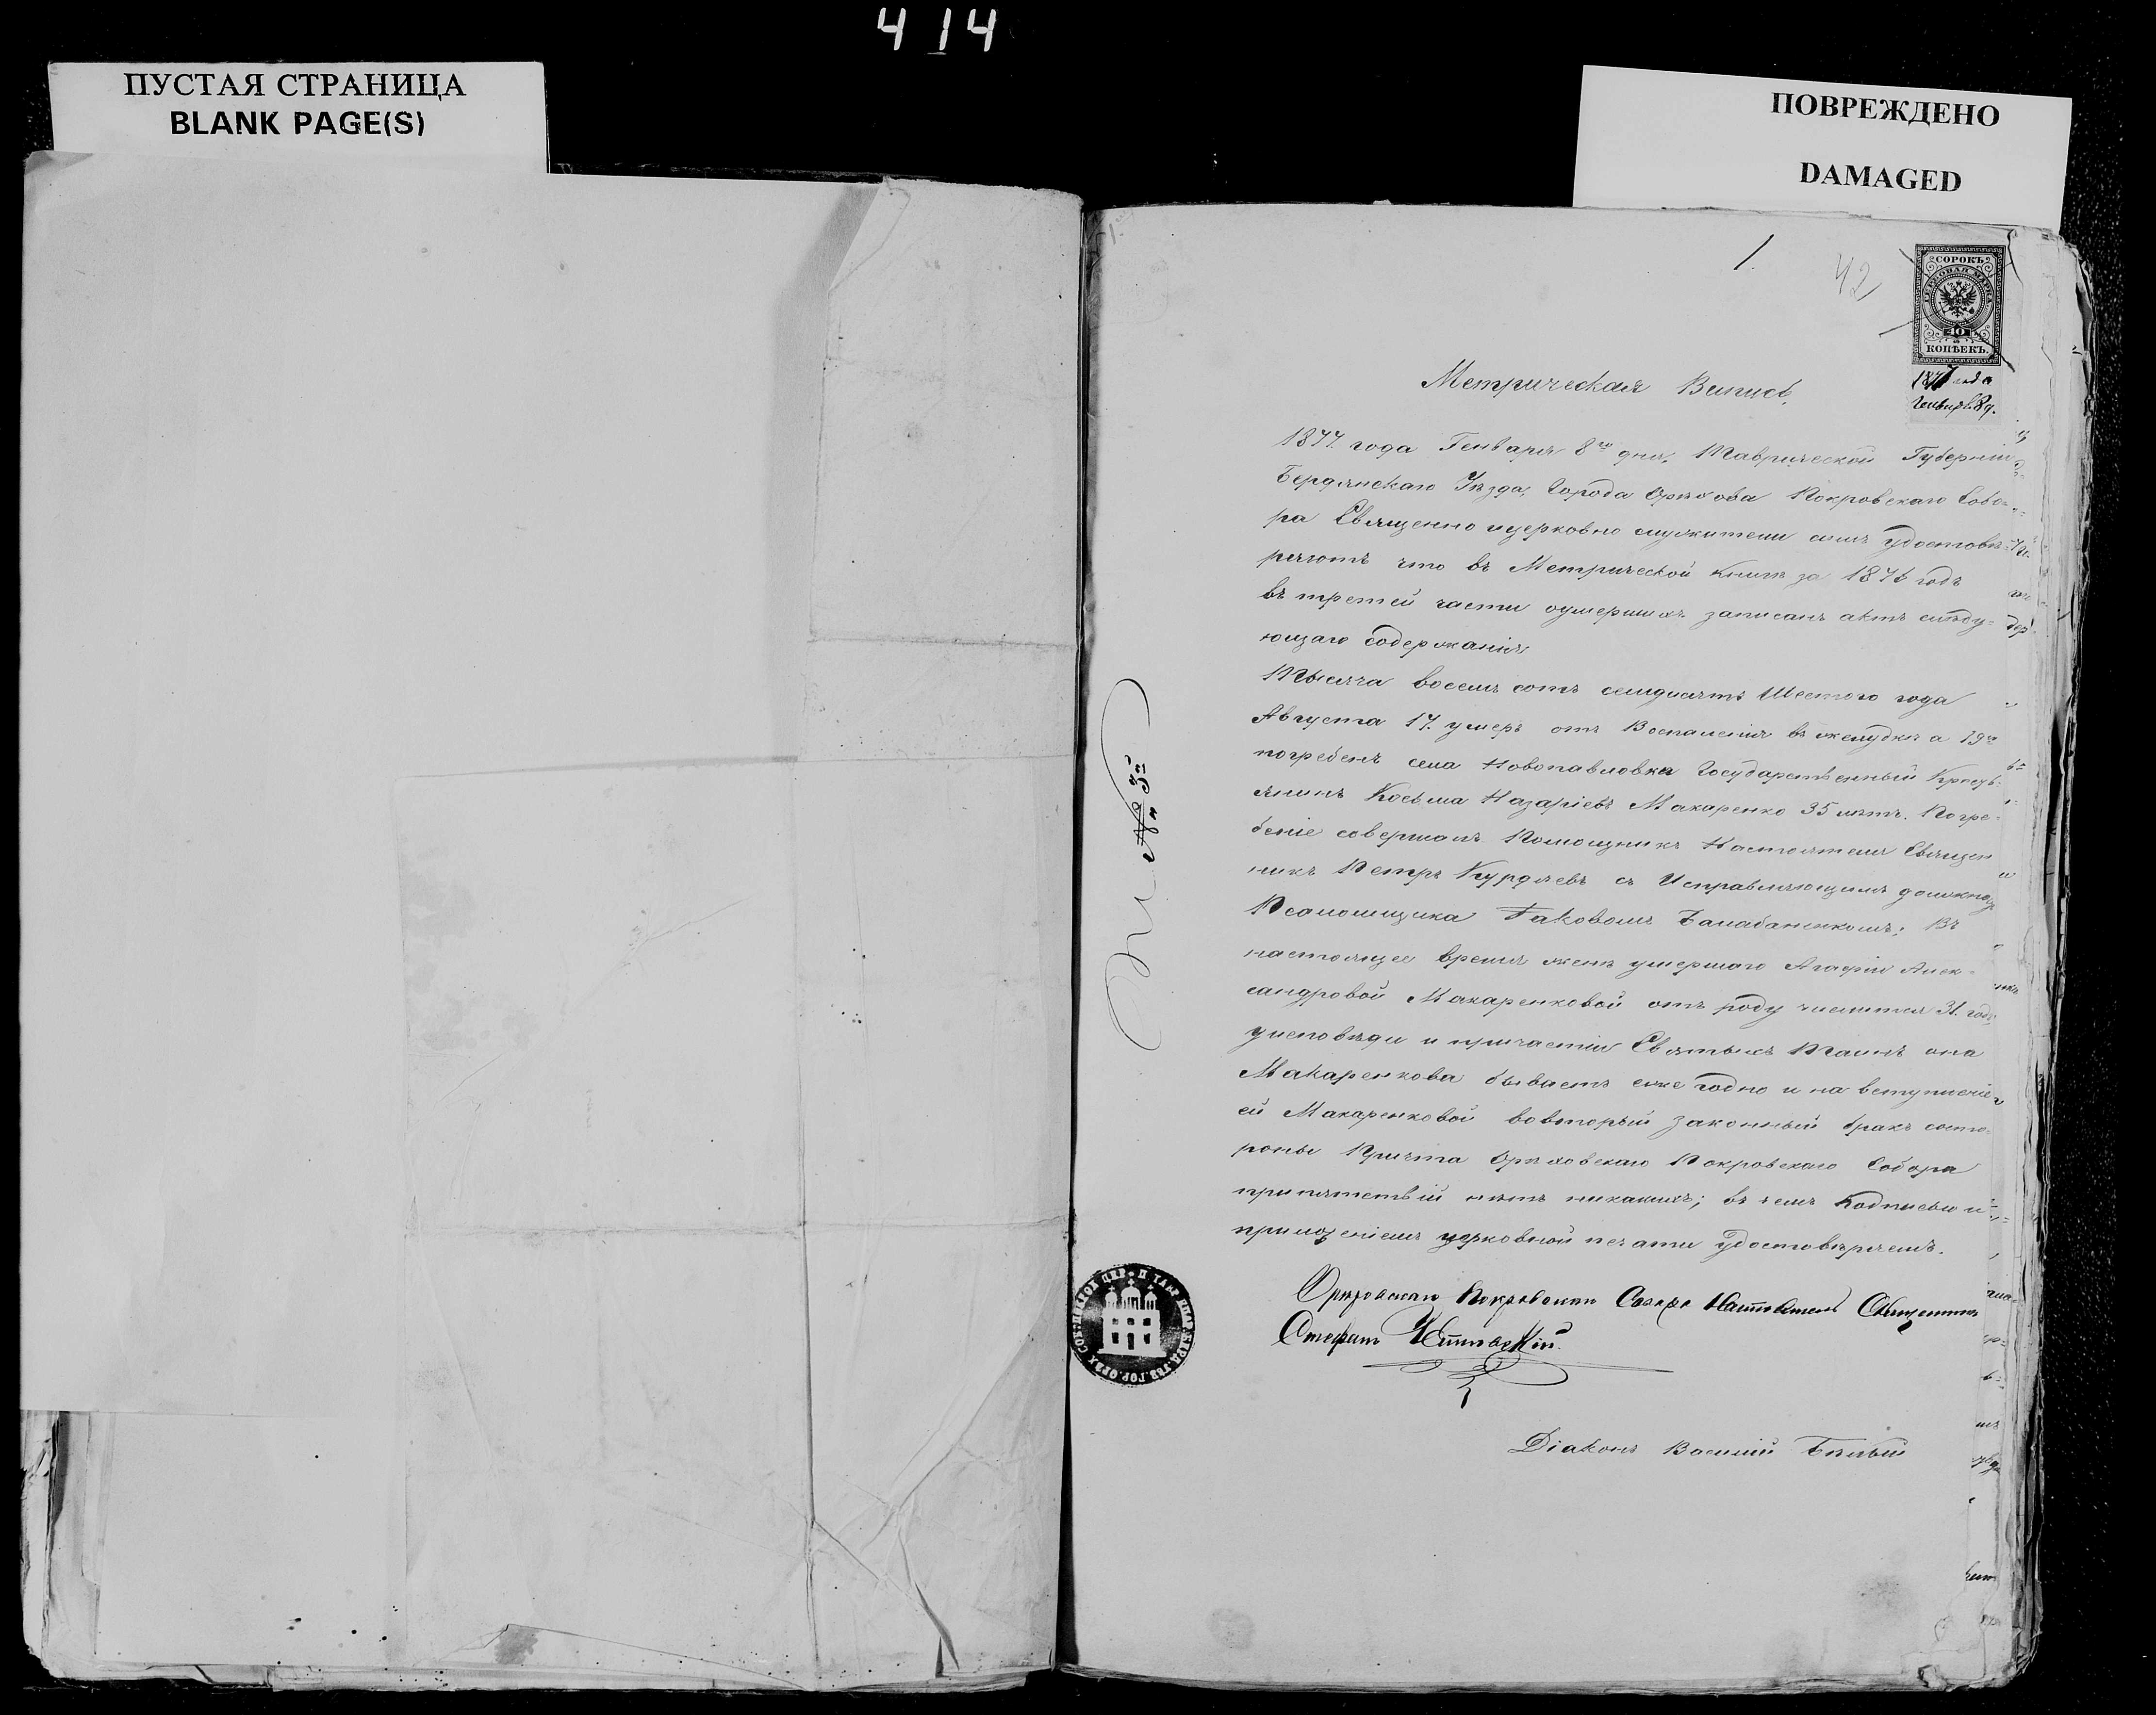 414
ПУСТАЯ СТРАНИЦА
BLANK PAGE(S)
ПОВРЕЖДЕНО
DAMAGED
1.
42
СОРОКЪ
ГЕРБОВАЯ МАРКА
40
КОПѢЕКЪ.
1877 года
Генваря 8 д.
Метрическая Випись.
1877. года Генваря 8го дня, Таврической Губерніи
Бердянскаго Уѣзда, Города Орѣхова Покровскаго Собо-
ра Священно ицерковно служители симъ удостовѣ-
ряютъ что въ Метрической книгѣ за 1876 годъ
въ третей части оумершихъ записанъ актъ слѣду-
ющаго содержанія
Тысяча восемъ сотъ семдисятъ Шестого года
Августа 17. умеръ отъ Воспаленія въ желудкѣ а 19го
погребенъ села Новопавловка Государственный Кресть-
янинъ Косьма Назаріевъ Макаренко 35 лѣтъ. Погре-
беніе совершалъ Помощникъ Настоятеля Священ
никъ Петръ Курдяевъ съ Исправляющимъ должность
Псаломщика Іаковомъ Балабаненкомъ; Въ
настоящее время женѣ умершаго Агафіи Алек-
сандровой Макаренковой отъ роду числится 31. годъ
уисповѣди и причастія Святыхъ Таинъ она
Макаренкова бываетъ еже годно и на вступленіе
ей Макаренковой вовторый законный бракъ состо-
роны Причта Орѣховскаго Покровскаго Собора
припятствій нѣтъ никакихъ; въ чемъ Подписью и
приложеніемъ церковной печати удостовѣряемъ.
Орѣховскаго Покровскаго Собора Настоятель Священникъ
Стефанъ
Діаконъ Василій Бѣлый
№ 3й